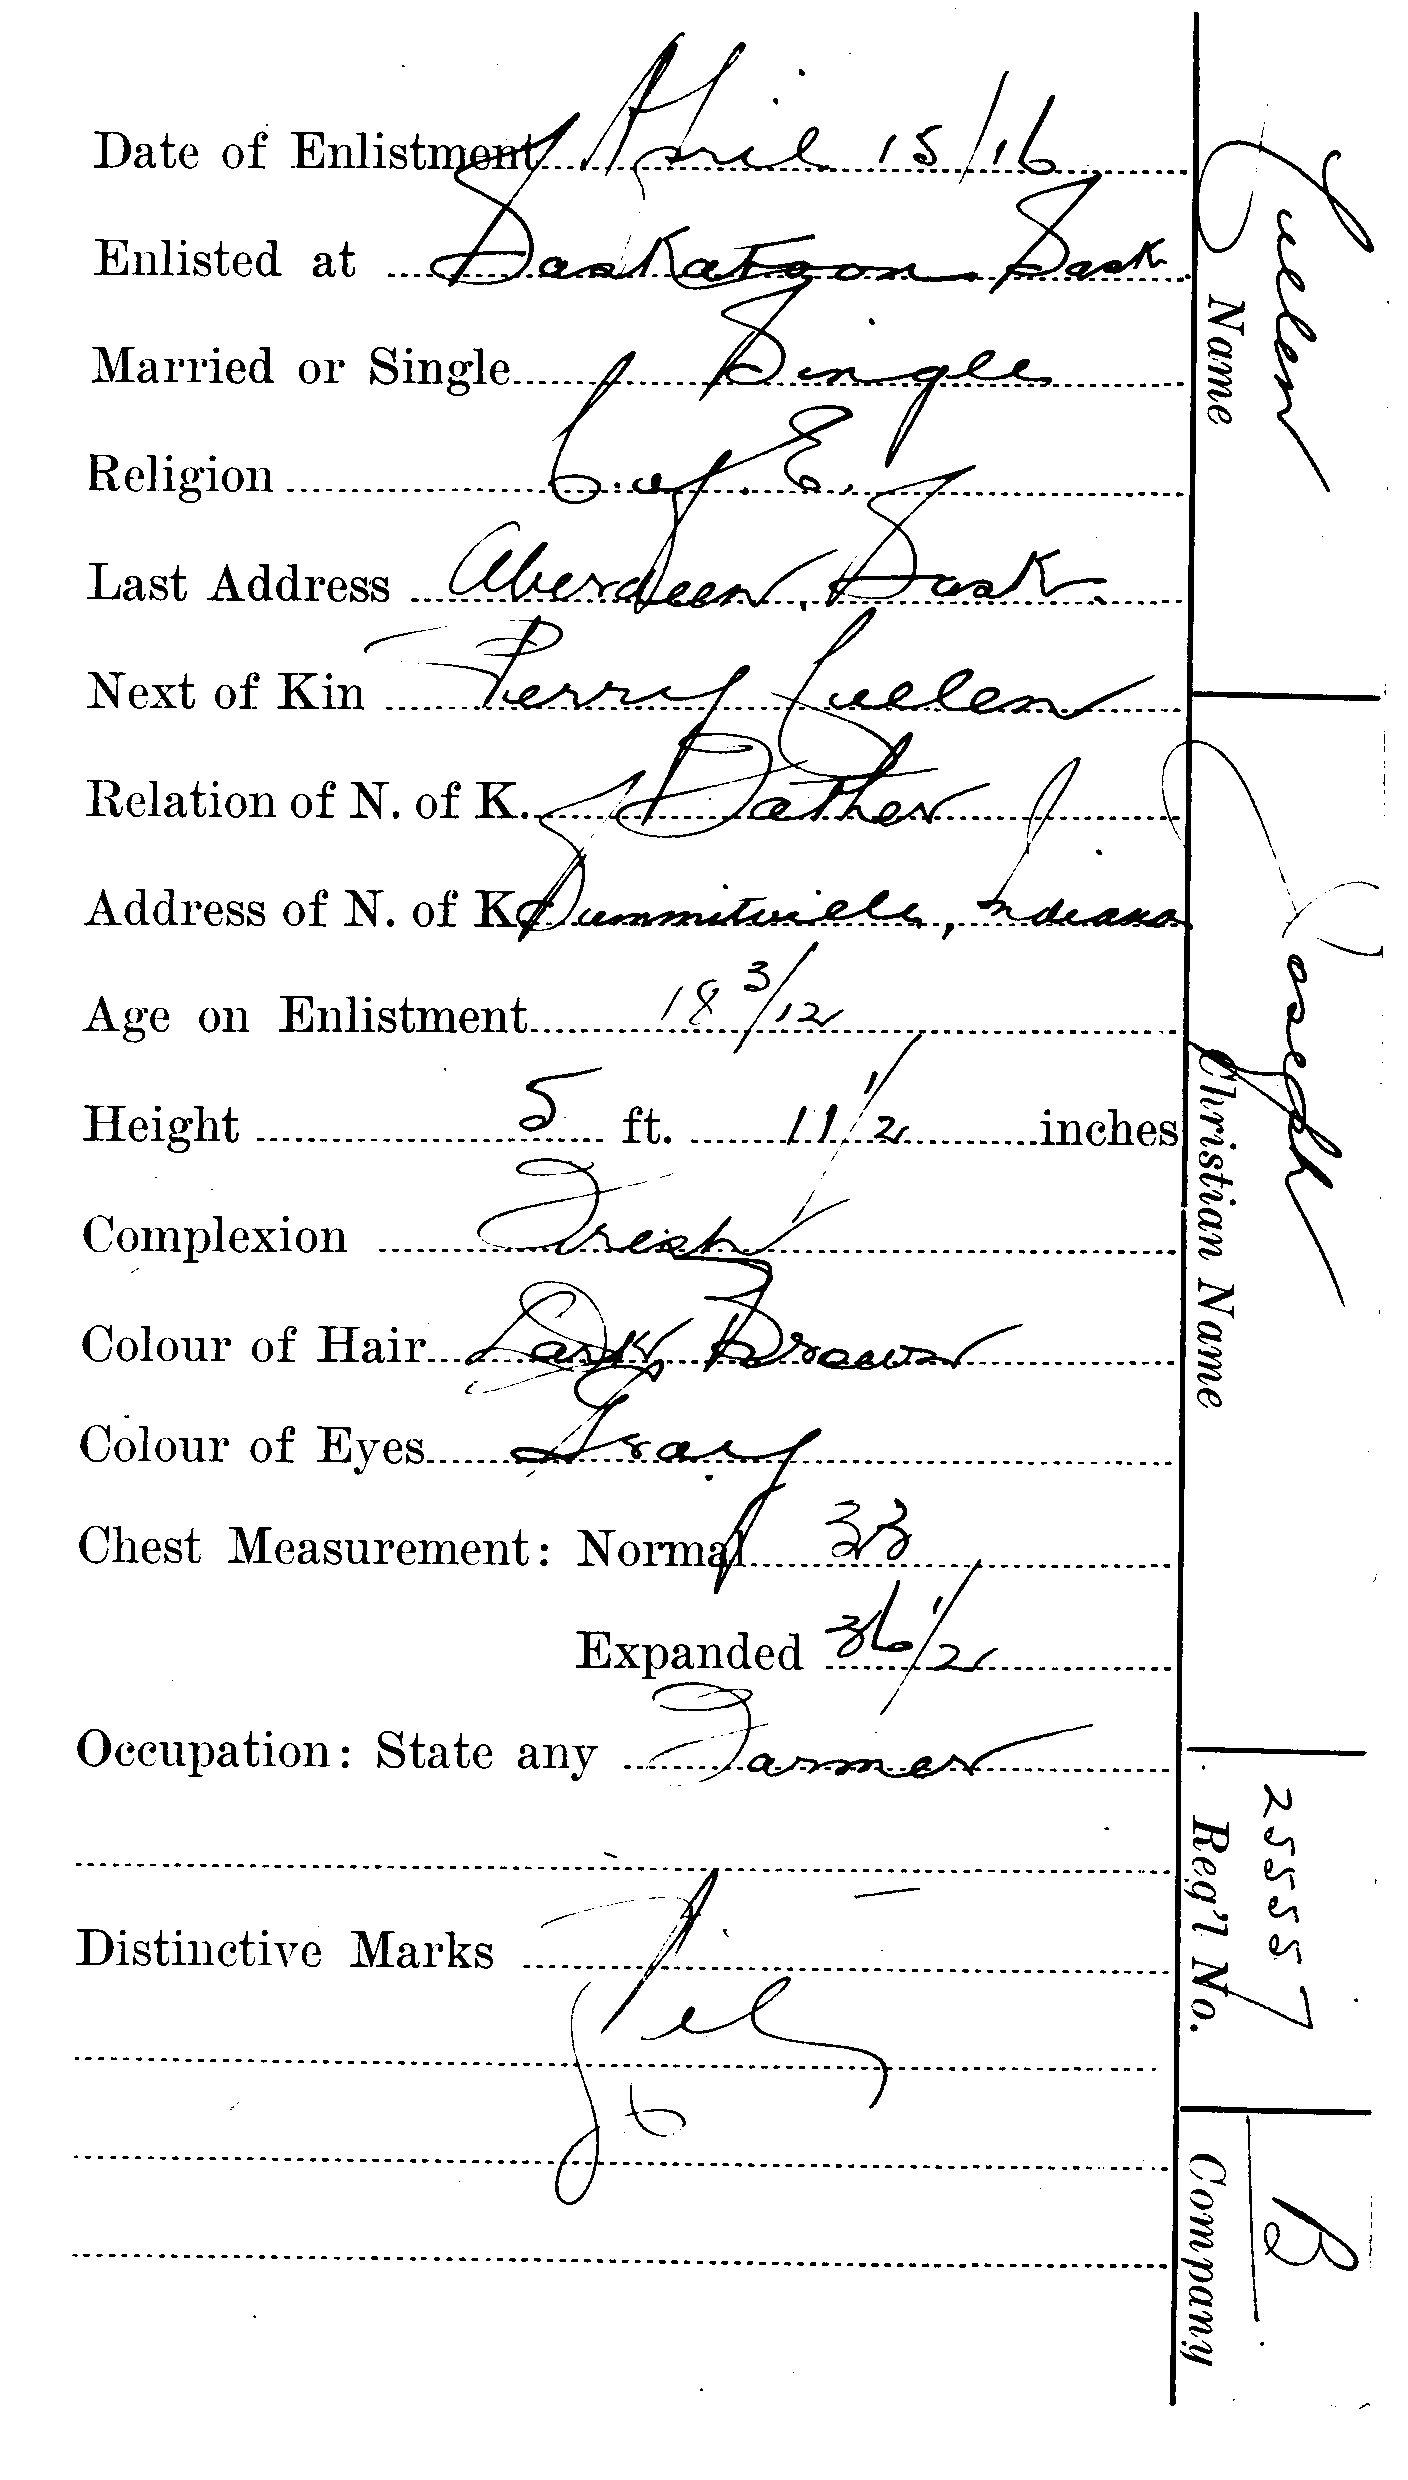 Date of Enlistment April 15/16
Enlisted at Saskatoon Sask.
Married or Single Single
Religion C. of E.
Last Address Aberdeen, Sask.
Next of Kin Perry Cullen
Relation of N. of K. Father
Address of N. of K. Summitville, Indiana
Age on Enlistment 18 3/12
Height 5 ft. 11 1/2 inches
Complexion Fresh
Colour of Hair Dark Brown
Colour of Eyes Gray
Chest Measurement: Normal 33
Expanded 36 1/2
Occupation: State any Farmer
Distinctive Marks
Nil
Cullen
Name
Joseph
Christian Name
255557
Reg'l No.
B
Company